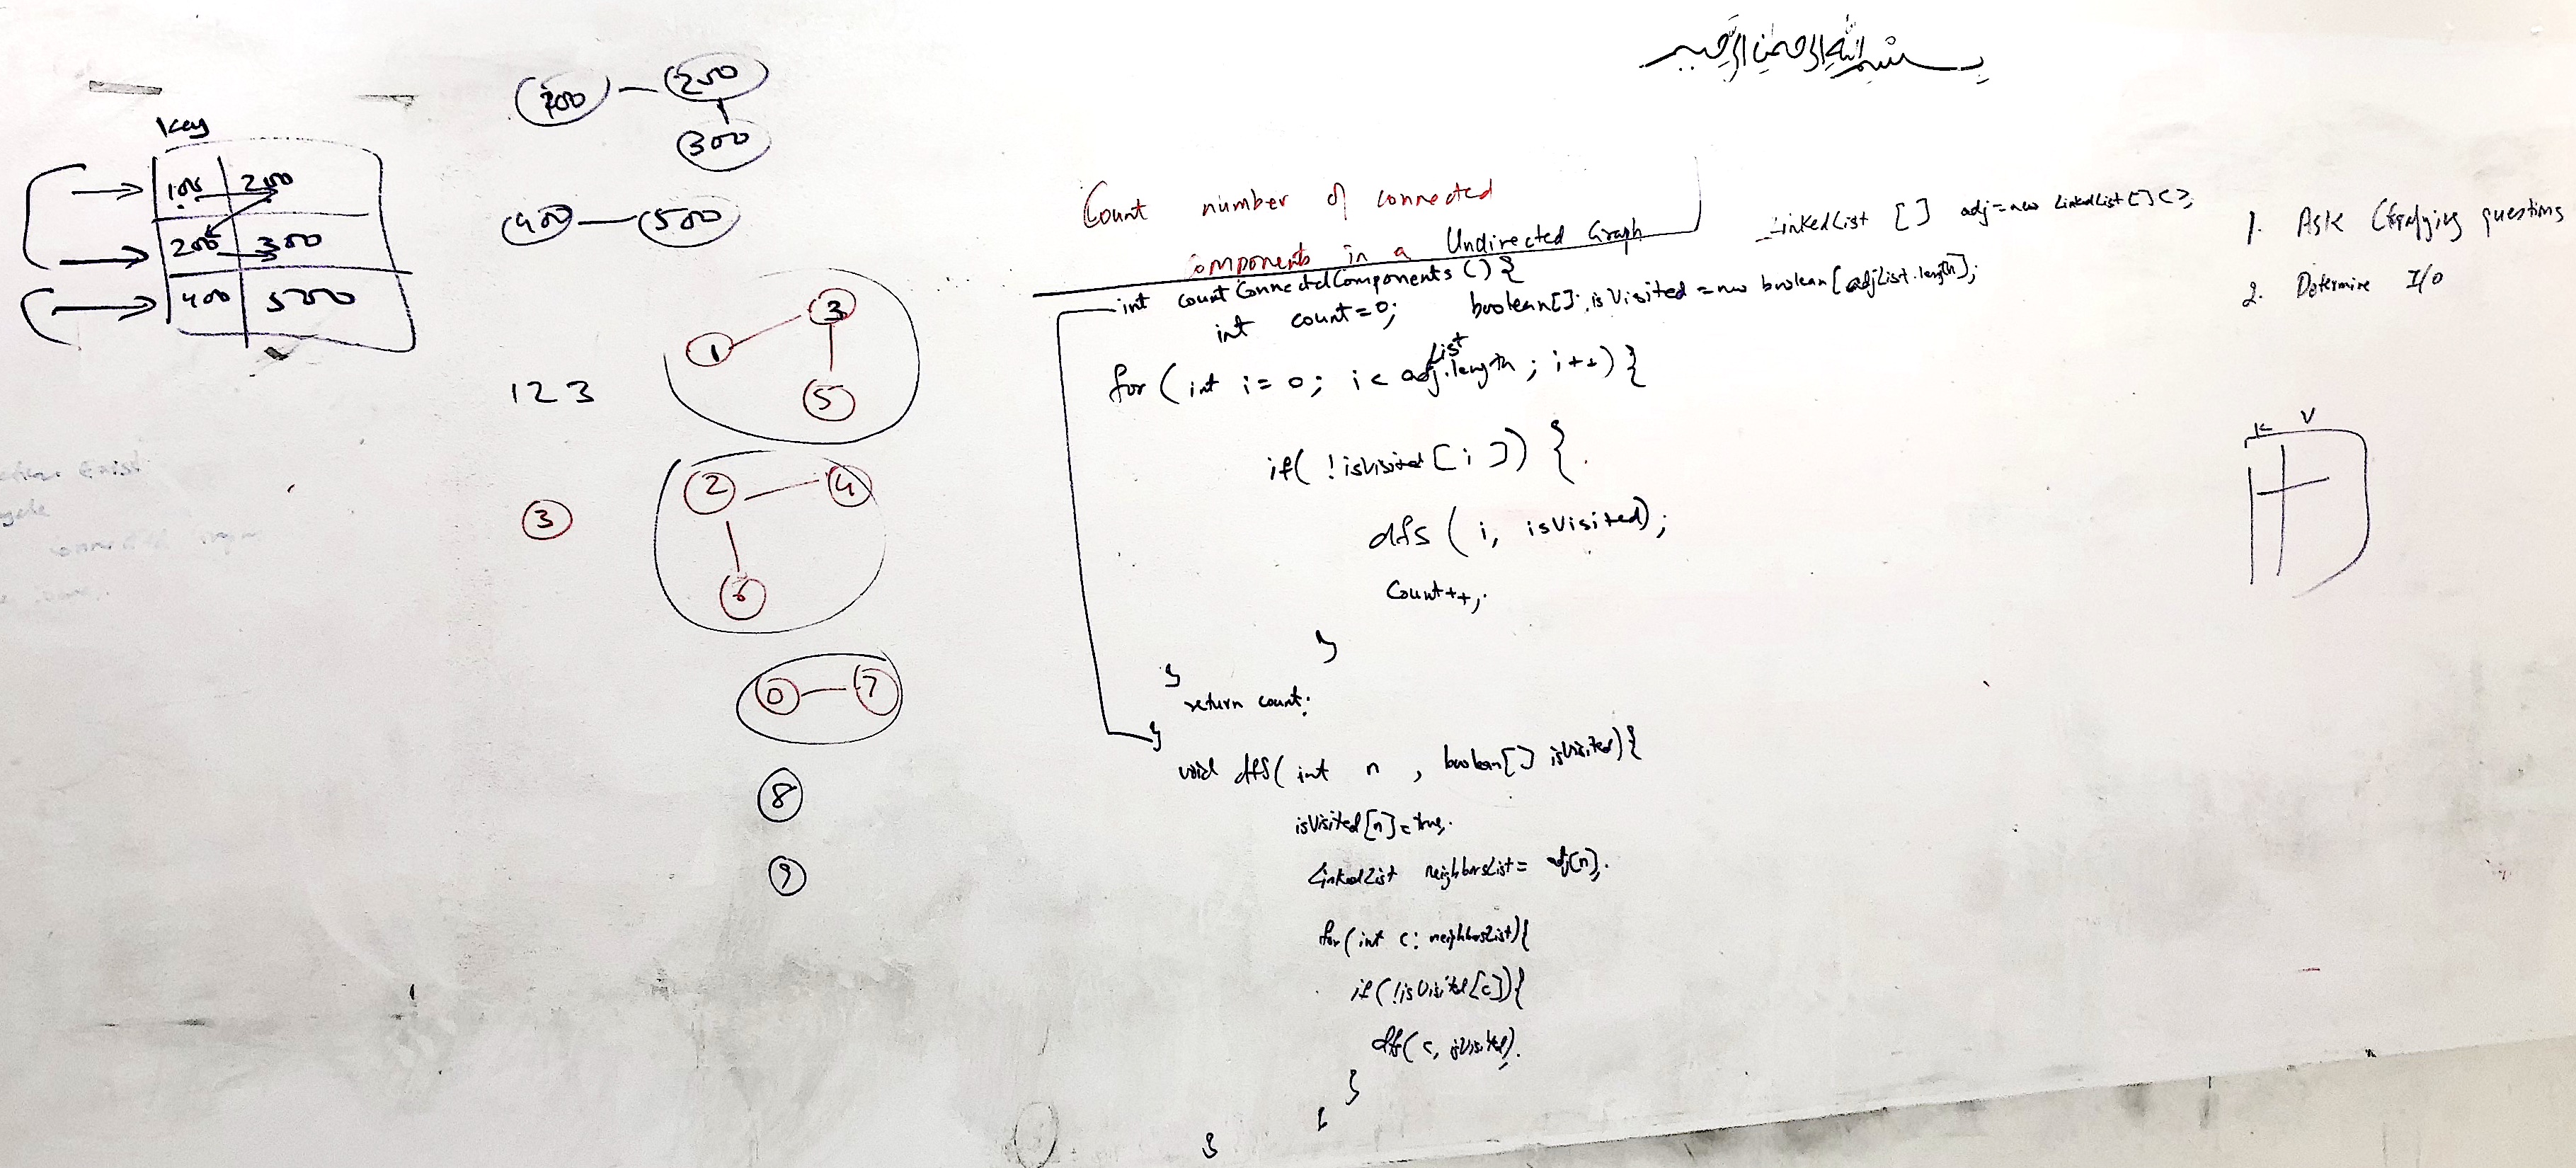 بسم الله الرحمن الرحيم
Key
100 200
200 300
400 500
200 300
400 500
1 2 3
3
1 3
5
2 4
6
0 7
8
9
Count number of connected
components in a Undirected Graph
int countConnectedComponents () {
int count = 0; boolean[] isVisited = new boolean[adjList.length];
for ( int i = 0; i < adjList.length ; i++) {
if( !isVisited [ i ]) {
dfs ( i, isVisited);
Count++;
}
}
return count;
}
void dfs( int n , boolean[] isVisited) {
isVisited[n] = true;
LinkedList neighborsList = adj[n];
for (int c : neighborsList) {
if (!isVisited[c]) {
dfs( c, isVisited);
}
}
}
LinkedList [ ] adj = new LinkedList[]<>;
1. Ask questions
2. Determine I/O
K V